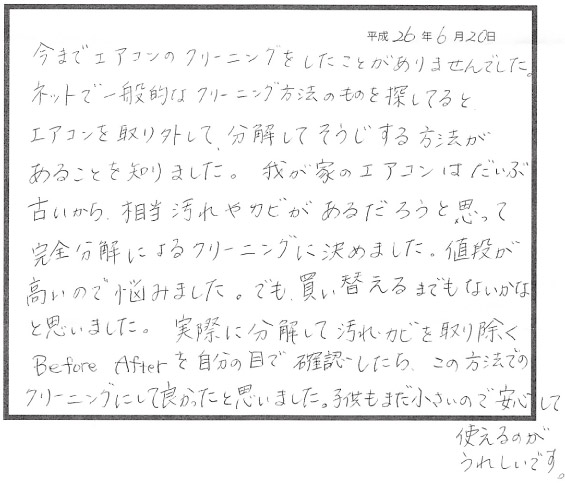 平成26年6月20日
今までエアコンのクリーニングをしたことがありませんでした。
ネットで一般的なクリーニング方法のものを探してると、
エアコンを取り外して、分解してそうじする方法が
あることを知りました。我が家のエアコンはだいぶ
古いから、相当汚れやカビがあるだろうと思って
完全分解によるクリーニングに決めました。値段が
高いので悩みました。でも、買い替えるまでもないかな
と思いました。実際に分解して汚れ・カビを取り除く
Before Afterを自分の目で確認したら、この方法での
クリーニングにして良かったと思いました。子供もまだ小さいので安心して
使えるのが
うれしいです。